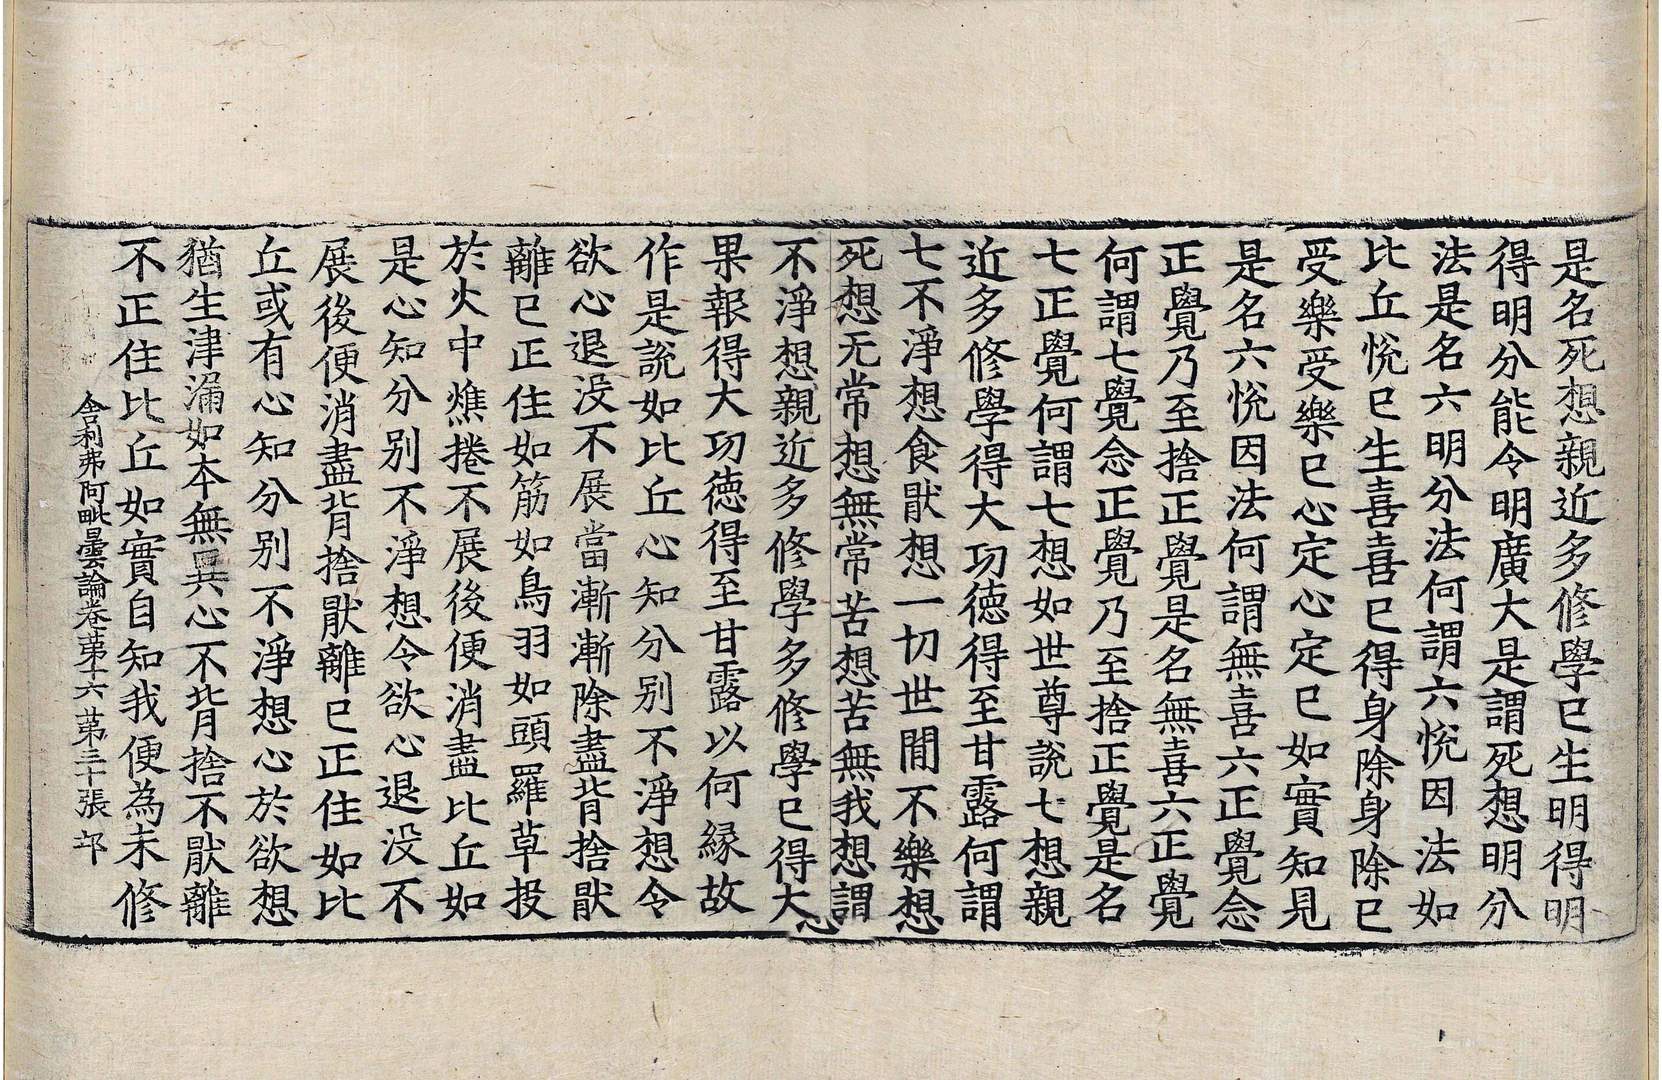 是名死想親近多修學已生明得明
得明分能令明廣大是謂死想明分
法是名六明分法何謂六悅因法如
比丘悅已生喜喜已得身除身除已
受樂受樂已心定心定已如實知見
是名六悅因法何謂無喜六正覺念
正覺乃至捨正覺是名無喜六正覺
何謂七覺念正覺乃至捨正覺是名
七正覺何謂七想如世尊說七想親
近多修學得大功德得至甘露何謂
七不淨想食猒想一切世間不樂想
死想无常想無常苦想苦無我想謂
不淨想親近多修學多修學已得大
心
果報得大功德得至甘露以何緣故
作是說如比丘心知分別不淨想令
欲心退没不展當漸漸除盡背捨猒
離已正住如筋如鳥羽如頭羅草投
於火中燋捲不展後便消盡比丘如
是心知分別不淨想令欲心退没不
展後便消盡背捨猒離已正住如比
丘或有心知分別不淨想心於欲想
猶生津漏如本無異心不背捨不猒離
不正住比丘如實自知我便為未修
舍利弗阿毗曇論卷苐十六 苐三十張 邙